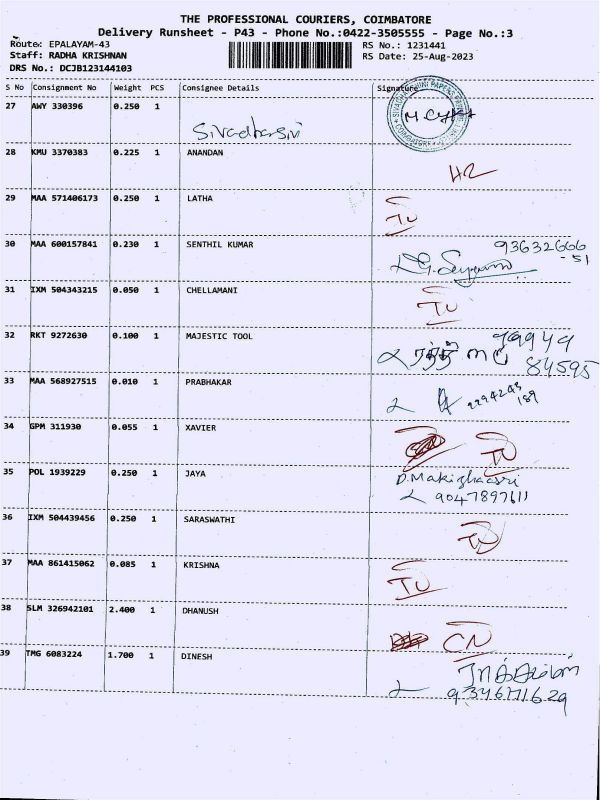 THE PROFESSIONAL COURIERS, COIMBATORE
Delivery Runsheet - P43 - Phone No.:0422-3505555 - Page No.:3
Route: EPALAYAM-43 RS No.: 1231441
Staff: RADHA KRISHNAN RS Date: 25-Aug-2023
DRS No.: DCJB123144103
S No Consignment No Weight PCS Consignee Details Signature
27 AWY 330396 0.250 1
Sivadharsi
28 KMU 3370383 0.225 1 ANANDAN
29 MAA 571406173 0.250 1 LATHA
30 MAA 600157841 0.230 1 SENTHIL KUMAR 93632666
-51
31 IXM 504343215 0.050 1 CHELLAMANI
32 RKT 9272630 0.100 1 MAJESTIC TOOL 99949
84595
33 MAA 568927515 0.010 1 PRABHAKAR
34 GPM 311930 0.055 1 XAVIER
35 POL 1939229 0.250 1 JAYA
9047897611
36 IXM 504439456 0.250 1 SARASWATHI
37 MAA 861415062 0.085 1 KRISHNA
38 SLM 326942101 2.400 1 DHANUSH
CN
39 TMG 6083224 1.700 1 DINESH